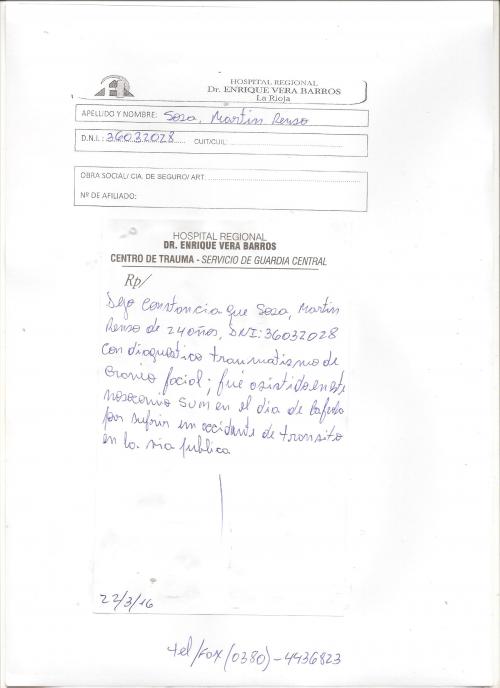 HOSPITAL REGIONAL
Dr. ENRIQUE VERA BARROS
La Rioja
APELLIDO Y NOMBRE: Sosa, Martin Renso
D.N.I.: 36032028 CUIT/CUIL:
OBRA SOCIAL/ CIA. DE SEGURO/ ART:
Nº DE AFILIADO:
HOSPITAL REGIONAL
DR. ENRIQUE VERA BARROS
CENTRO DE TRAUMA - SERVICIO DE GUARDIA CENTRAL
Rp/
Dejo constancia que Sosa, Martin
Renso de 24 años, DNI: 36032028
con diagnostico traumatismo de
craneo facial; fué asistido en este
nosocomio en el dia de la fecha
por sufrir un accidente de transito
en la via publica
22/3/16
tel/fax (0380)-4436823